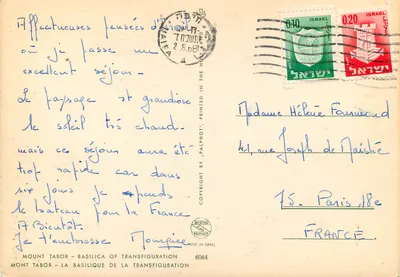 Affectueuses pensées d'
où je passe un
excellent séjour.
Le paysage est grandiose
le soleil très chaud
mais ce séjour aura été
trop rapide car dans
six jours je prends
le bateau pour la France
A Bientôt.
Je t'embrasse
MOUNT TABOR - BASILICA OF TRANSFIGURATION 6064
MONT TABOR - LA BASILIQUE DE LA TRANSFIGURATION
COPYRIGHT BY "PALPHOT", PRINTED IN THE
MADE IN ISRAEL
חיפה
HAIFA
0.10 ISRAEL
ישראל
0.20 ISRAEL
ישראל
Madame Hélène
41, rue Joseph de Maistre
75. Paris 18e
FRANCE